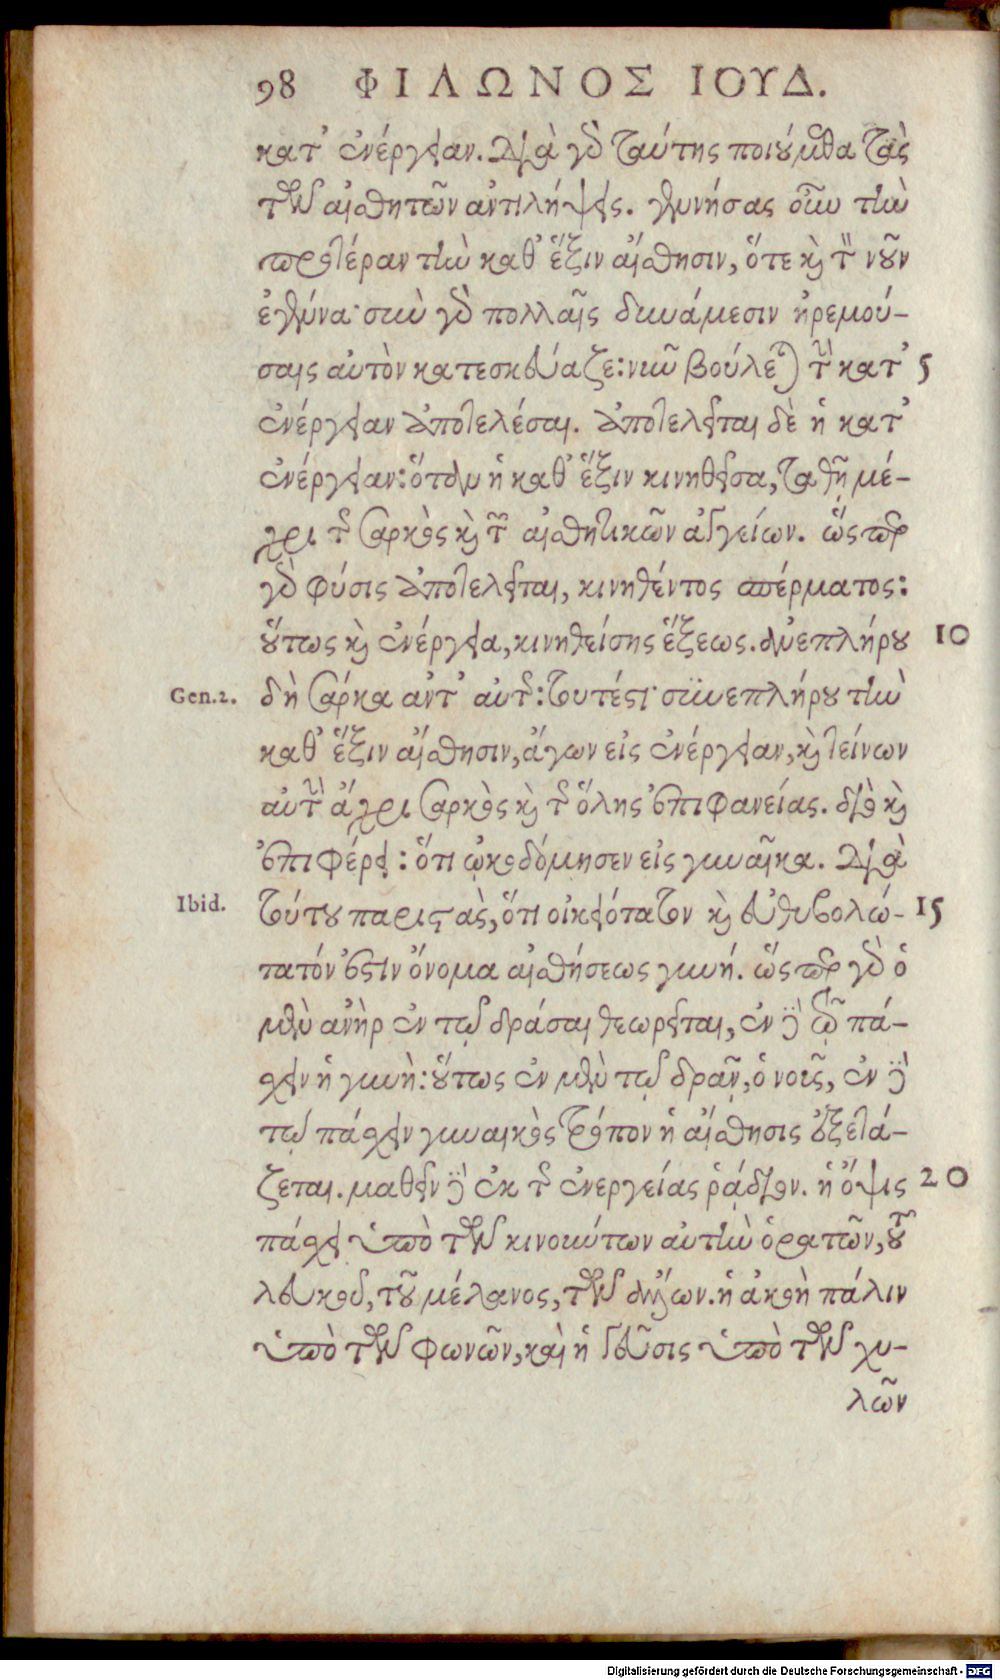 98 ΦΙΛΩΝΟΣ ΙΟΥΔ.
κατ' ἐνέργειαν. διὰ γὸ ταύτης ποιούμεθα τὰς
τῶν αἰσθητῶν ἀντιλήψεις. γεννήσας οὖν τὴν
προτέραν τὴν καθ' ἕξιν αἴσθησιν, ὅτε καὶ τὸν νοῦν
ἐγέννα· σὺν γὸ πολλαῖς δυνάμεσιν ἠρεμού-
σαις αὐτὸν κατεσκεύαζε: νῦν βούλεται τὴν κατ' 5
ἐνέργειαν ἀποτελέσαι. ἀποτελεῖται δὲ ἡ κατ'
ἐνέργειαν: ὅταν ἡ καθ' ἕξιν κινηθεῖσα, ταθῇ μέ-
χρι τῆς σαρκὸς καὶ τῶν αἰσθητικῶν ἀγγείων. ὥσπερ
γὸ φύσις ἀποτελεῖται, κινηθέντος σπέρματος:
οὕτως καὶ ἐνέργεια, κινηθείσης ἕξεως. ἀνεπλήρου 10
Gen.2. δὴ σάρκα ἀντ' αὐτῆς: τουτέστι· συνεπλήρου τὴν
καθ' ἕξιν αἴσθησιν, ἄγων εἰς ἐνέργειαν, καὶ τείνων
αὐτὴν ἄχρι σαρκὸς καὶ τῆς ὅλης ἐπιφανείας. διὸ καὶ
ἐπιφέρει: ὅτι ᾠκοδόμησεν εἰς γυναῖκα. διὰ
Ibid. τούτου παριστὰς, ὅτι οἰκειότατον καὶ εὐθυβολώ- 15
τατόν ἐστιν ὄνομα αἰσθήσεως γυνή. ὥσπερ γὸ ὁ
μὲν ἀνὴρ ἐν τῷ δράσαι θεωρεῖται, ἐν δὲ τῷ πά-
σχειν ἡ γυνὴ: οὕτως ἐν μὲν τῷ δρᾷν, ὁ νοῦς, ἐν δὲ
τῷ πάσχειν γυναικὸς τρόπον ἡ αἴσθησις ἐξετά-
ζεται. μαθεῖν δὲ ἐκ τῆς ἐνεργείας ῥᾴδιον. ἡ ὄψις 20
πάσχει ὑπὸ τῶν κινούντων αὐτὴν ὁρατῶν, τοῦ
λευκοῦ, τοῦ μέλανος, τῶν ἄλλων. ἡ ἀκοὴ πάλιν
ὑπὸ τῶν φωνῶν, καὶ ἡ γεῦσις ὑπὸ τῶν χυ-
λῶν
Digitalisierung gefördert durch die Deutsche Forschungsgemeinschaft - DFG